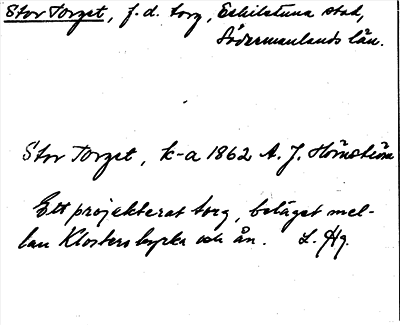 Stor Torget, f.d. torg, Eskilstuna stad,
Södermanlands län.
Stor Torget, k-a 1862 A. J. Hörnström
Ett projekterat torg, beläget mel-
lan Klosters kyrka och ån. L. Hg.